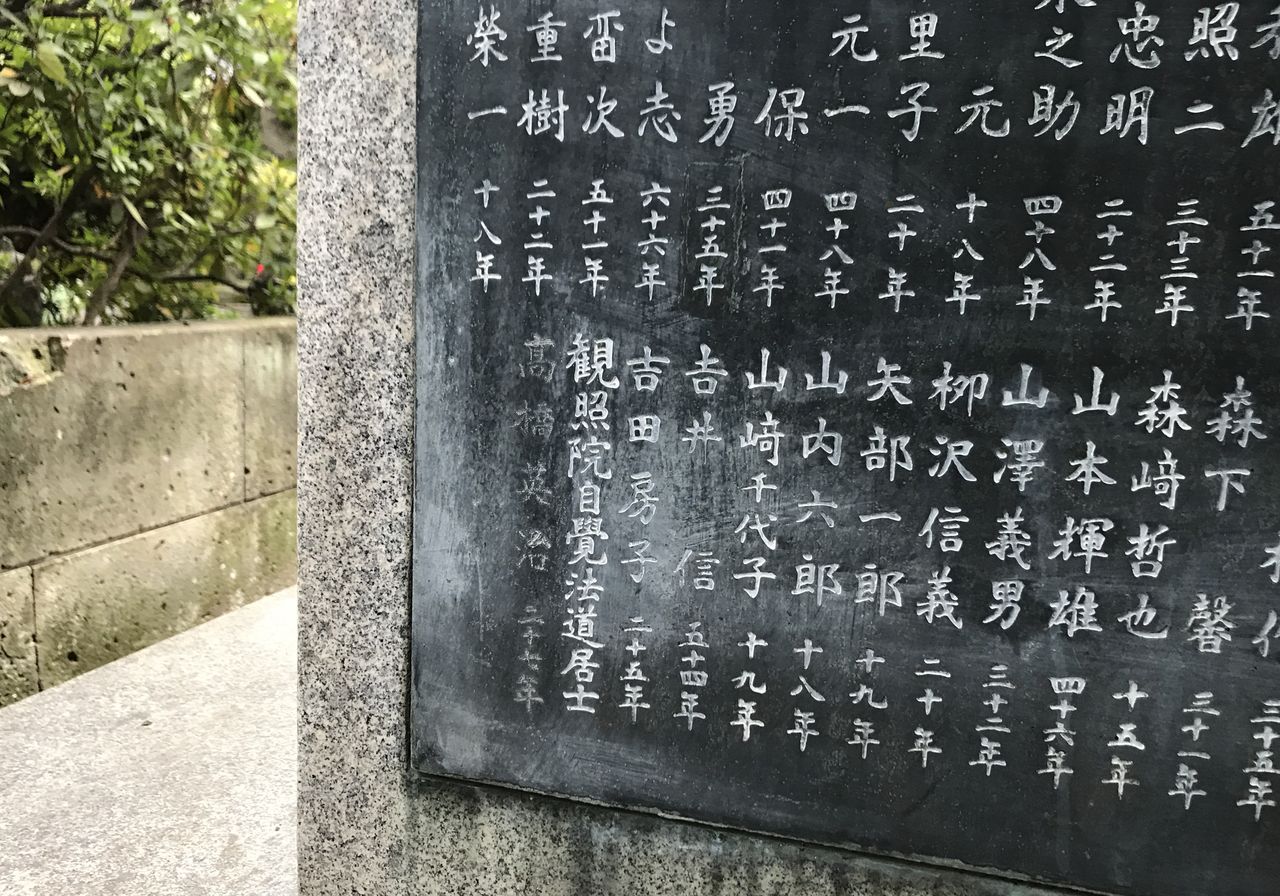 雄 五十一年
照二 三十三年
忠明 二十二年
之助 四十八年
元 十八年
里子 二十年
元一 四十八年
保 四十一年
勇 三十五年
よ志 六十六年
次 五十一年
重樹 二十二年
榮一 十八年
三十五年
森下 馨 三十一年
森﨑哲也 十五年
山本輝雄 四十六年
山澤義男 三十二年
柳沢信義 二十年
矢部一郎 十九年
山内六郎 十八年
山﨑千代子 十九年
𠮷井 信 五十四年
吉田房子 二十五年
観照院自覺法道居士
髙橋英治 二十七年